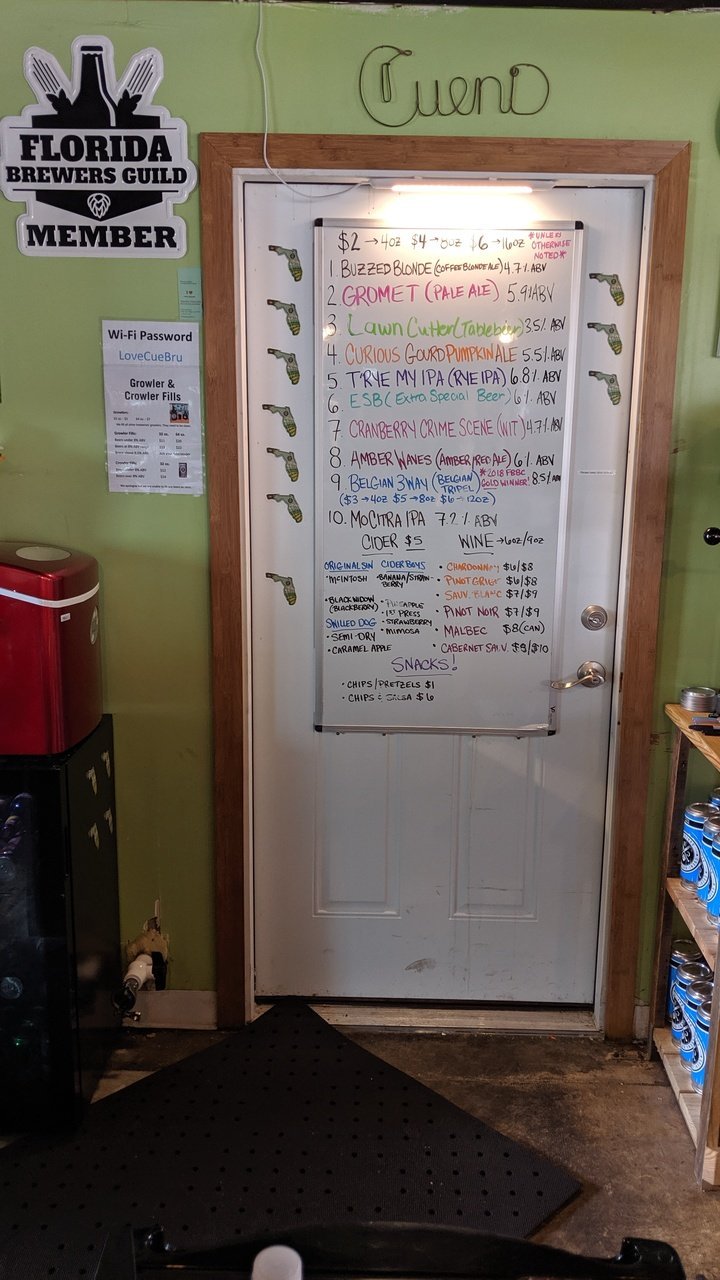 Cueni
FLORIDA
BREWERS GUILD
MEMBER
Wi-Fi Password
LoveCueBru
Growler &
Crowler Fills
Growlers:
Growler Fills:
Crowler Fills:
$2 → 4oz $4 → 8oz $6 → 16oz *UNLESS
OTHERWISE
NOTED*
1. BUZZED BLONDE (COFFEE BLONDE ALE) 4.7% ABV
2. GROMET (PALE ALE) 5.9% ABV
3. LAWN CUTTER (Table bier) 3.5% ABV
4. CURIOUS GOURD PUMPKIN ALE 5.5% ABV
5. T'RYE MY IPA (RYE IPA) 6.8% ABV
6. ESB (Extra Special Beer) 6% ABV
7. CRANBERRY CRIME SCENE (WIT) 4.7% ABV
8. AMBER WAVES (AMBER/RED ALE) 6% ABV
9. BELGIAN 3WAY (BELGIAN TRIPEL) *2018 FBBC GOLD WINNER! 8.5% ABV
($3 → 4oz $5 → 8oz $6 → 12oz)
10. MOCITRA IPA 7.2% ABV
CIDER $5
ORIGINAL SIN
• MCINTOSH
• BLACK WIDOW
(BLACKBERRY)
SWILLED DOG
• SEMI-DRY
• CARAMEL APPLE
CIDER BOYS
• BANANA/STRAW-
BERRY
• PINEAPPLE
• 1ST PRESS
• STRAWBERRY
• MIMOSA
WINE → 6oz/9oz
• CHARDONNAY $6/$8
• PINOT GRIGIO $6/$8
• SAUV. BLANC $7/$9
• PINOT NOIR $7/$9
• MALBEC $8 (CAN)
• CABERNET SAUV. $9/$10
SNACKS!
• CHIPS/PRETZELS $1
• CHIPS & SALSA $6